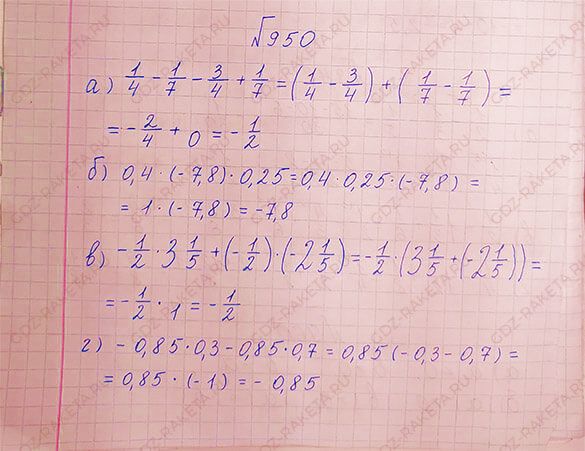 №950
а) 1/4 - 1/7 - 3/4 + 1/7 = (1/4 - 3/4) + (1/7 - 1/7) =
= - 2/4 + 0 = - 1/2
б) 0,4 · (-7,8) · 0,25 = 0,4 · 0,25 · (-7,8) =
= 1 · (-7,8) = -7,8
в) - 1/2 · 3 1/5 + (- 1/2) · (-2 1/5) = - 1/2 · (3 1/5 + (-2 1/5)) =
= - 1/2 · 1 = - 1/2
г) - 0,85 · 0,3 - 0,85 · 0,7 = 0,85 (-0,3 - 0,7) =
= 0,85 · (-1) = - 0,85
GDZ-RAKETA.RU